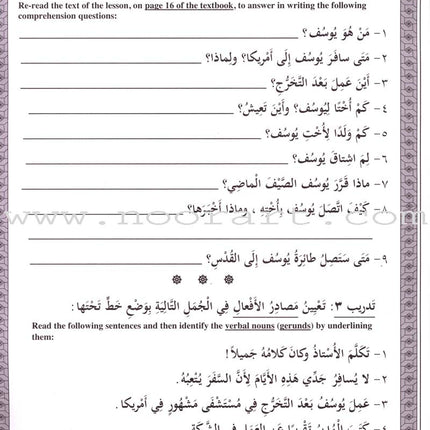 Re-read the text of the lesson, on page 16 of the textbook, to answer in writing the following
comprehension questions:
١- مَنْ هُوَ يُوسُف؟
٢- مَتَى سافَرَ يُوسُف إِلَى أَمْريكا؟ ولِماذا؟
٣- أَيْنَ عَمِلَ بَعْدَ التَّخَرُّجِ؟
٤- كَمْ أُخْتًا لِيُوسُف؟ وأَيْنَ تَعِيشُ؟
٥- كَمْ وَلَدًا لِأُخْتِ يُوسُف؟
٦- لِمَ اشتاقَ يُوسُف؟
٧- ماذا قَرَّرَ يُوسُف الصَّيْفَ الْماضِي؟
٨- كَيْفَ اتَّصَلَ يُوسُف بِأُخْتِهِ، وماذا أَخْبَرَها؟
www.noorart.com
٩- مَتَى سَتَصِلُ طائِرَةُ يُوسُف إِلَى القُدْسِ؟
تَدريب ٣: تَعْيِينُ مَصادِرِ الأَفْعالِ فِي الْجُمَلِ التَّالِيَةِ بِوَضْعِ خَطٍّ تَحْتَها:
Read the following sentences and then identify the verbal nouns (gerunds) by underlining
them:
١- تَكَلَّمَ الأُسْتاذُ وكانَ كَلامُهُ جَمِيلاً!
٢- لا يُسافِرُ جَدِّي هَذِهِ الأَيَّامَ لِأَنَّ السَّفَرَ يُتْعِبُهُ.
٣- عَمِلَ يُوسُف بَعْدَ التَّخَرُّجِ فِي مُسْتَشْفَى مَشْهُورٍ فِي أَمْرِيكا.